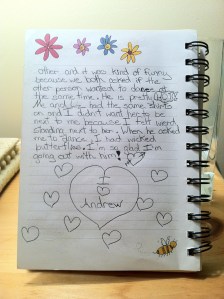 other and it was kind of funny
because we both asked if the
other person wanted to dance at
the same time. He is pretty HOTT
Me and had the same shirts
on and I didn't want to be
next to her because I felt weird
standing next to her. When he asked
me to dance I had wicked
butterflies. I'm so glad I'm
going out with him!
I
Andrew